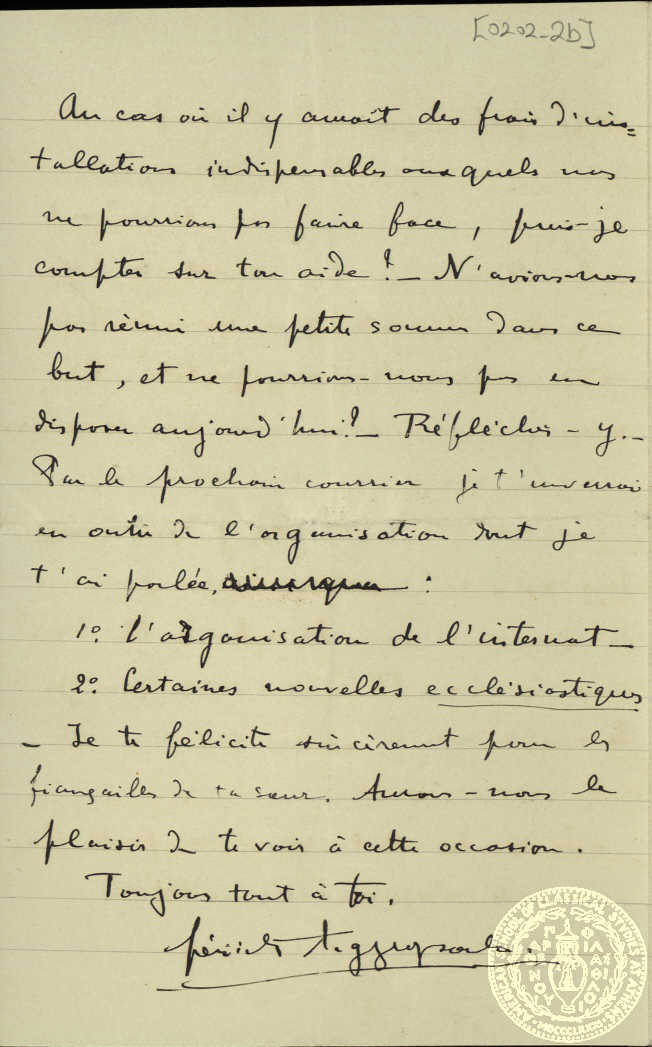 [0202-2b]
Au cas où il y aurait des frais d'ins=
tallations indispensables auxquels nous
ne pourrions pas faire face, puis-je
compter sur ton aide?_ N'avions-nous
pas réuni une petite somme dans ce
but, et ne pourrions-nous pas en
disposer aujourd'hui?_ Réfléchis-y._
Par le prochain courrier je t'enverrai
en outre de l'organisation dont je
t'ai parlée, :
1º. l'organisation de l'internat_
2º. Certaines nouvelles ecclésiastiques
_ Je te félicite sincèrement pour les
fiançailles de ta sœur. Aurons-nous le
plaisir de te voir à cette occasion.
Toujours tout à toi.
AMERICAN SCHOOL OF CLASSICAL STUDIES AT ATHENS
MDCCCLXXXI